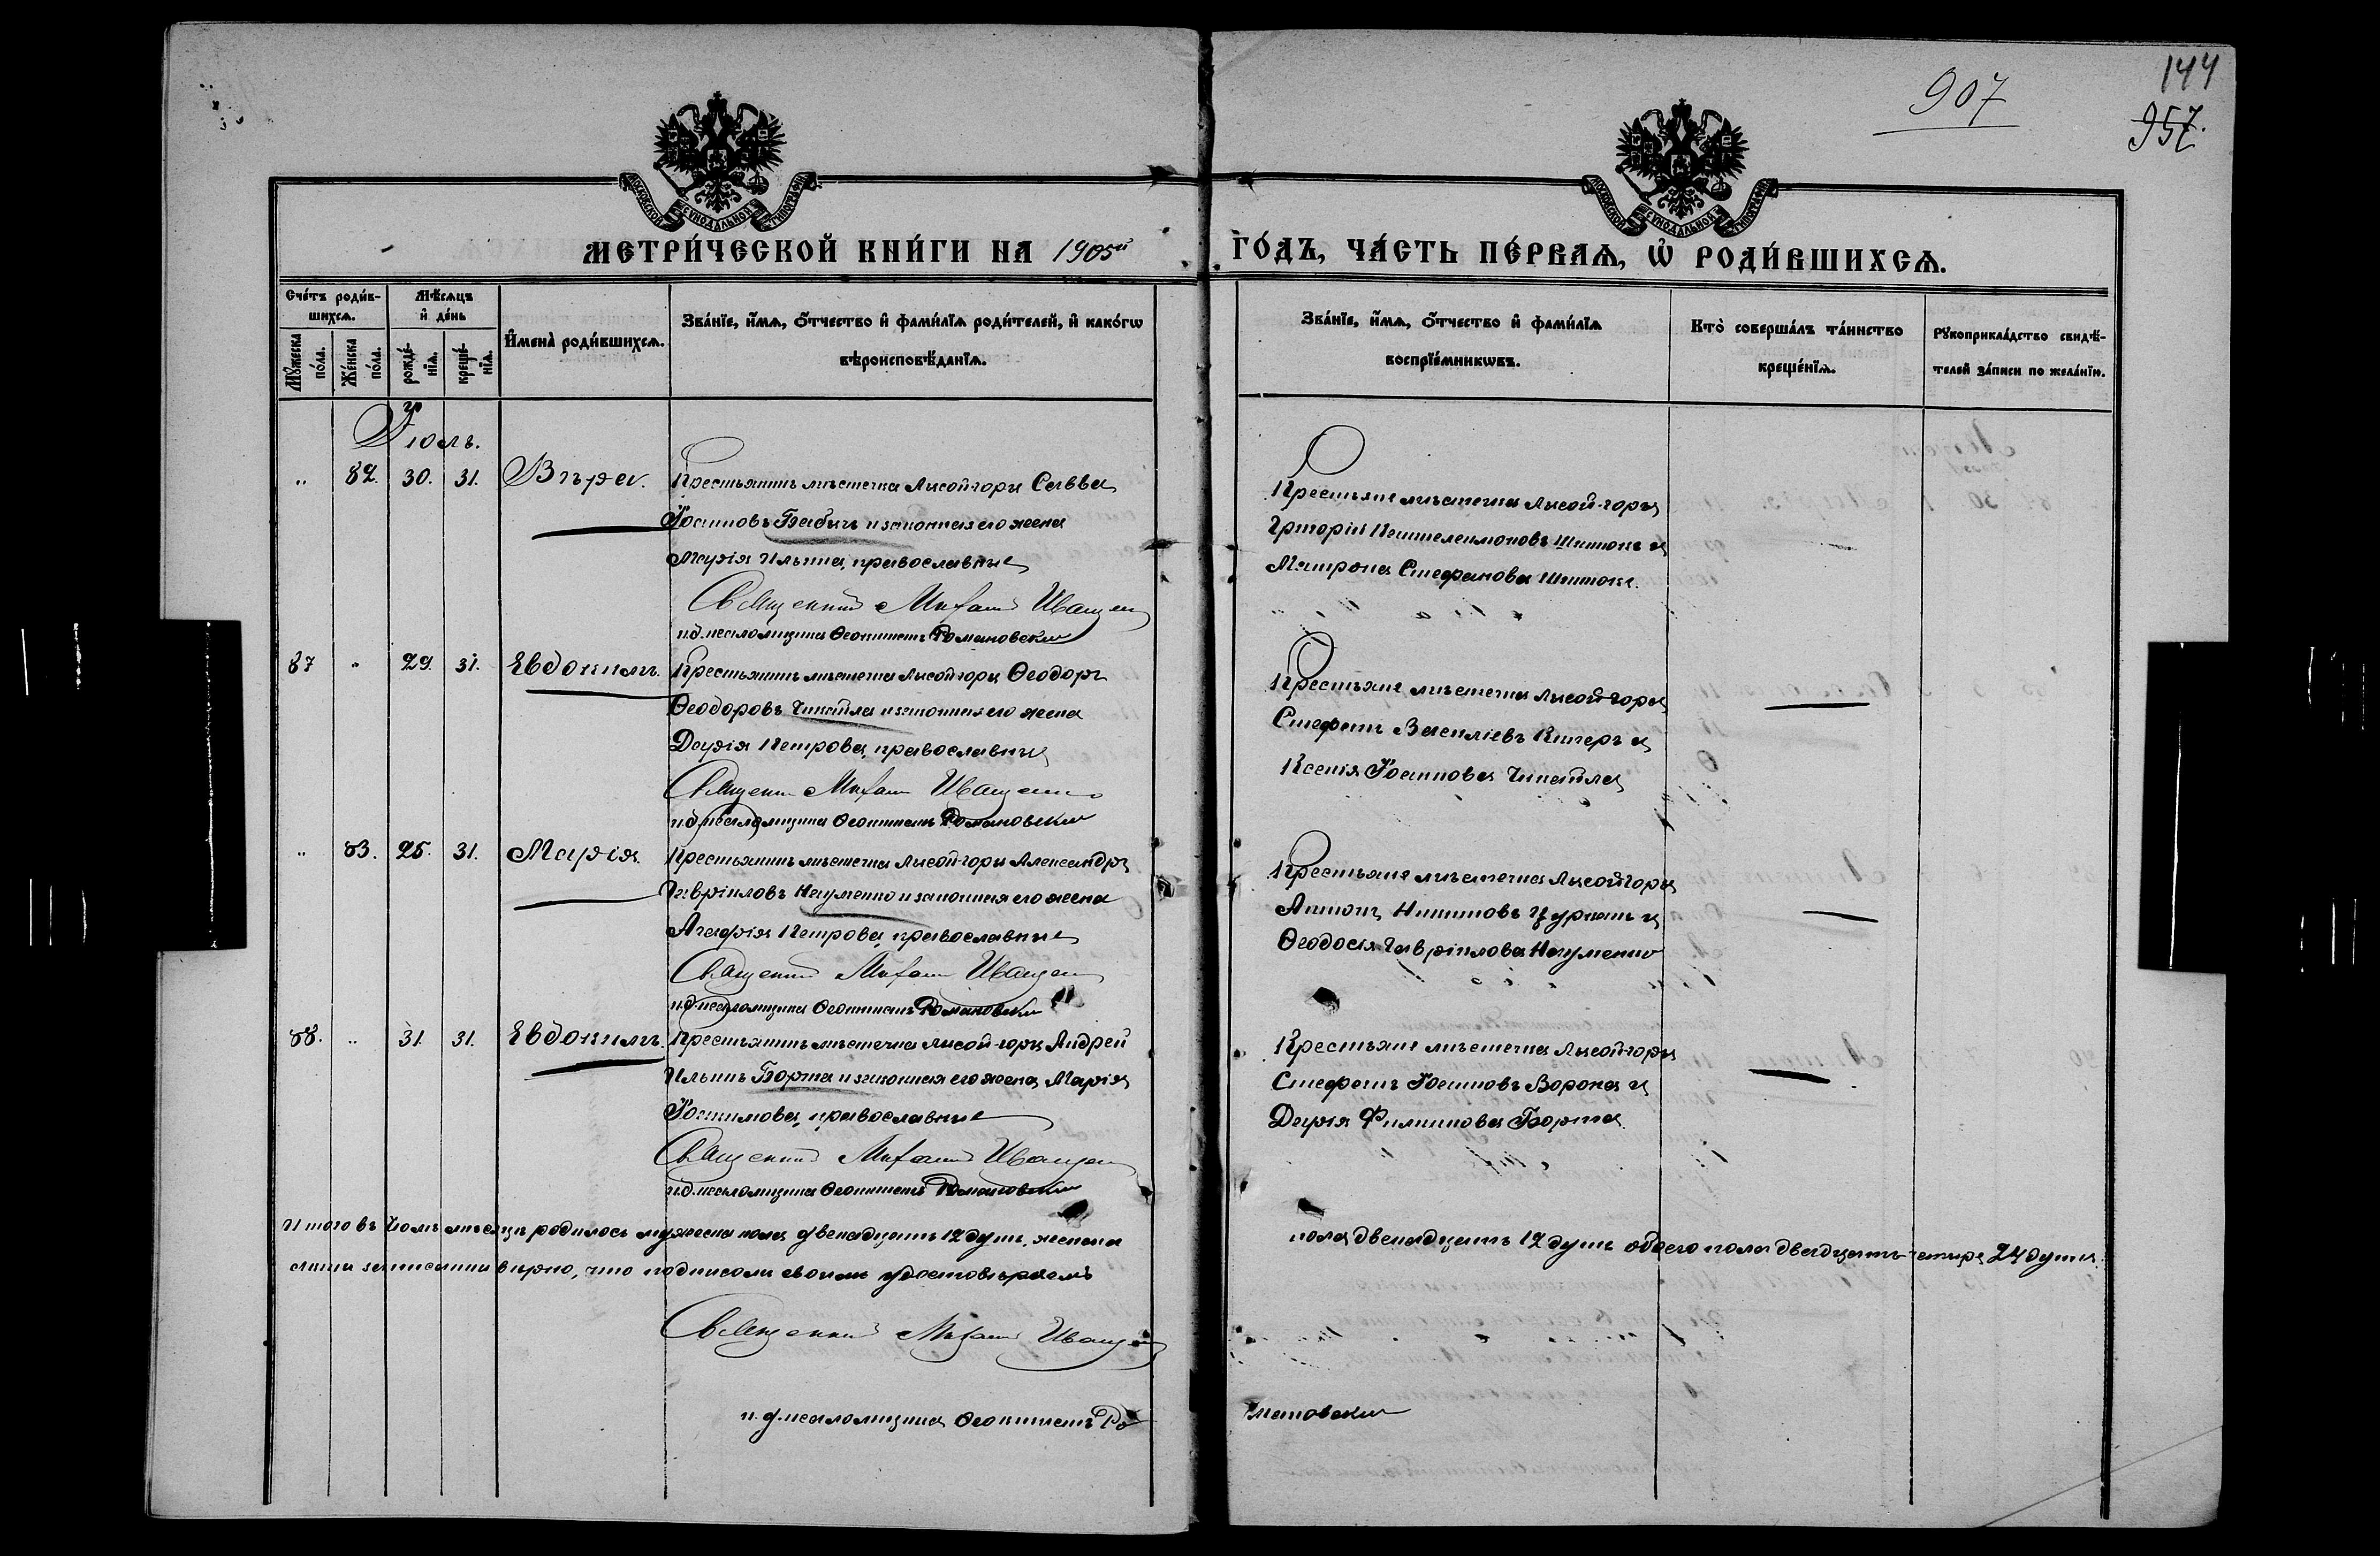 907
144
957.
МОСКОВСКОЙ СѴНОДАЛЬНОЙ ТИПОГРАФІИ
МОСКОВСКОЙ СѴНОДАЛЬНОЙ ТИПОГРАФІИ
МЕТРИ́ЧЕСКОЙ КНИ́ГИ НА 1905й ГО́ДЪ, ЧА́СТЬ ПЕ́РВАѦ, Ѡ҆ РОДИ́ВШИХСѦ.
Сче́тъ роди́в-
шихсѧ.
Мꙋ́жеска
по́ла.
Же́нска
по́ла.
Мѣ́сѧцъ
и҆ де́нь
рожде́-
нїѧ.
креще́-
нїѧ.
И҆мена̀ роди́вшихсѧ.
Зва́нїе, и҆́мѧ, ѻ҆́тчество и҆ фами́лїѧ роди́телей, и҆ како́гѡ
вѣроисповѣ́данїѧ.
Зва́нїе, и҆́мѧ, ѻ҆́тчество и҆ фами́лїѧ
воспрїе́мникѡвъ.
Кто̀ соверша́лъ та́инство
креще́нїѧ.
Рꙋкоприкла́дство свидѣ́-
телей за́писи по жела́нїю.
Іюль.
" 82. 30. 31. Вѣра.
Крестьянинъ мѣстечка Лысой-горы Савва
Іоанновъ Бабичъ и законная его жена
Марія Ильина, православные
Священник Михаил Иващен
и.д. псаломщика Феоктистъ Романовский
Крестьяне мѣстечка Лысой-горы
Григорій Пантелеимоновъ и
Матрона Стефанова
87 " 29. 31. Евдокимъ.
Крестьянинъ мѣстечка Лысой горы Ѳеодоръ
Ѳеодоровъ и законная его жена
Дарія Петрова, православные
Священ Михаил Иващенко
и.д. псаломщика Феоктистъ Романовский
Крестьяне мѣстечка Лысой горы
Стефанъ Василіевъ и
Ксенія Іоаннова
" 83. 25. 31. Марія.
Крестьянинъ мѣстечка Лысой-горы Александръ
Гавріиловъ Науменко и законная его жена
Агафія Петрова, православные
Священник Михаил Иващен
и.д. псаломщика Феоктистъ Романовский
Крестьяне мѣстечка Лысой горы
Антонъ и
Ѳеодосія Гавріилова Науменко
88. " 31. 31. Евдокимъ.
Крестьянинъ мѣстечка Лысой-горы Андрей
Ильинъ Борта и законная его жена Марія
Іоакимова, православные
Священник Михаил Иващен
и.д. псаломщика Феоктистъ Романовский
Крестьяне мѣстечка Лысой-горы
Стефанъ Іоанновъ Ворона и
Дарія Филипова Борта
Итого въ Іюлѣ мѣсяцѣ родилось мужеска пола двенадцать 12 душ. женска пола двенадцать 12 душъ обоего пола двадцать-четыре 24 души.
вѣрно, что подписомъ своимъ удостовѣряемъ
Священник Михаил Иващен
и.д. псаломщика Феоктистъ Романовский